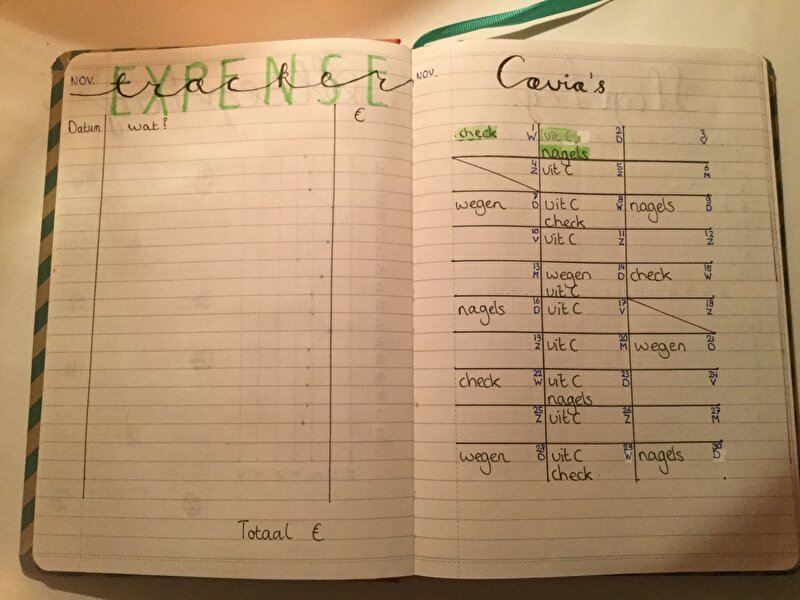 NOV.
EXPENSE
tracker
Datum wat? €
Totaal €
NOV.
Cavia's
check 1 vit C 2 3
W nagels D V
4 vit C 5 6
Z Z M
wegen 7 vit C 8 nagels 9
D check W D
10 vit C 11 12
V Z Z
13 wegen 14 check 15
M vit C D W
nagels 16 vit C 17 18
D V Z
19 vit C 20 wegen 21
Z M D
check 22 vit C 23 24
W nagels D V
25 vit C 26 27
Z Z M
wegen 28 vit C 29 nagels 30
D check W D